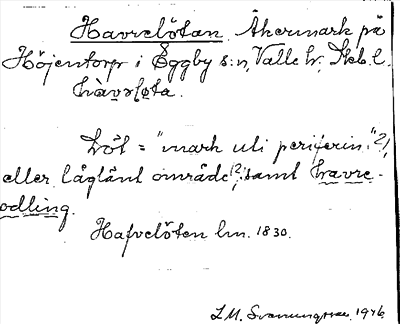 Havrelötan. Åkermark på
Höjentorp i Eggby s:n, Valle hr, Skb. l.
hàvrløta.
Löt = "mark uti periferin"?,
eller låglänt område?, samt havre-
odling.
Hafvelöten lm. 1830.
L.M. Svanungsson 1946.